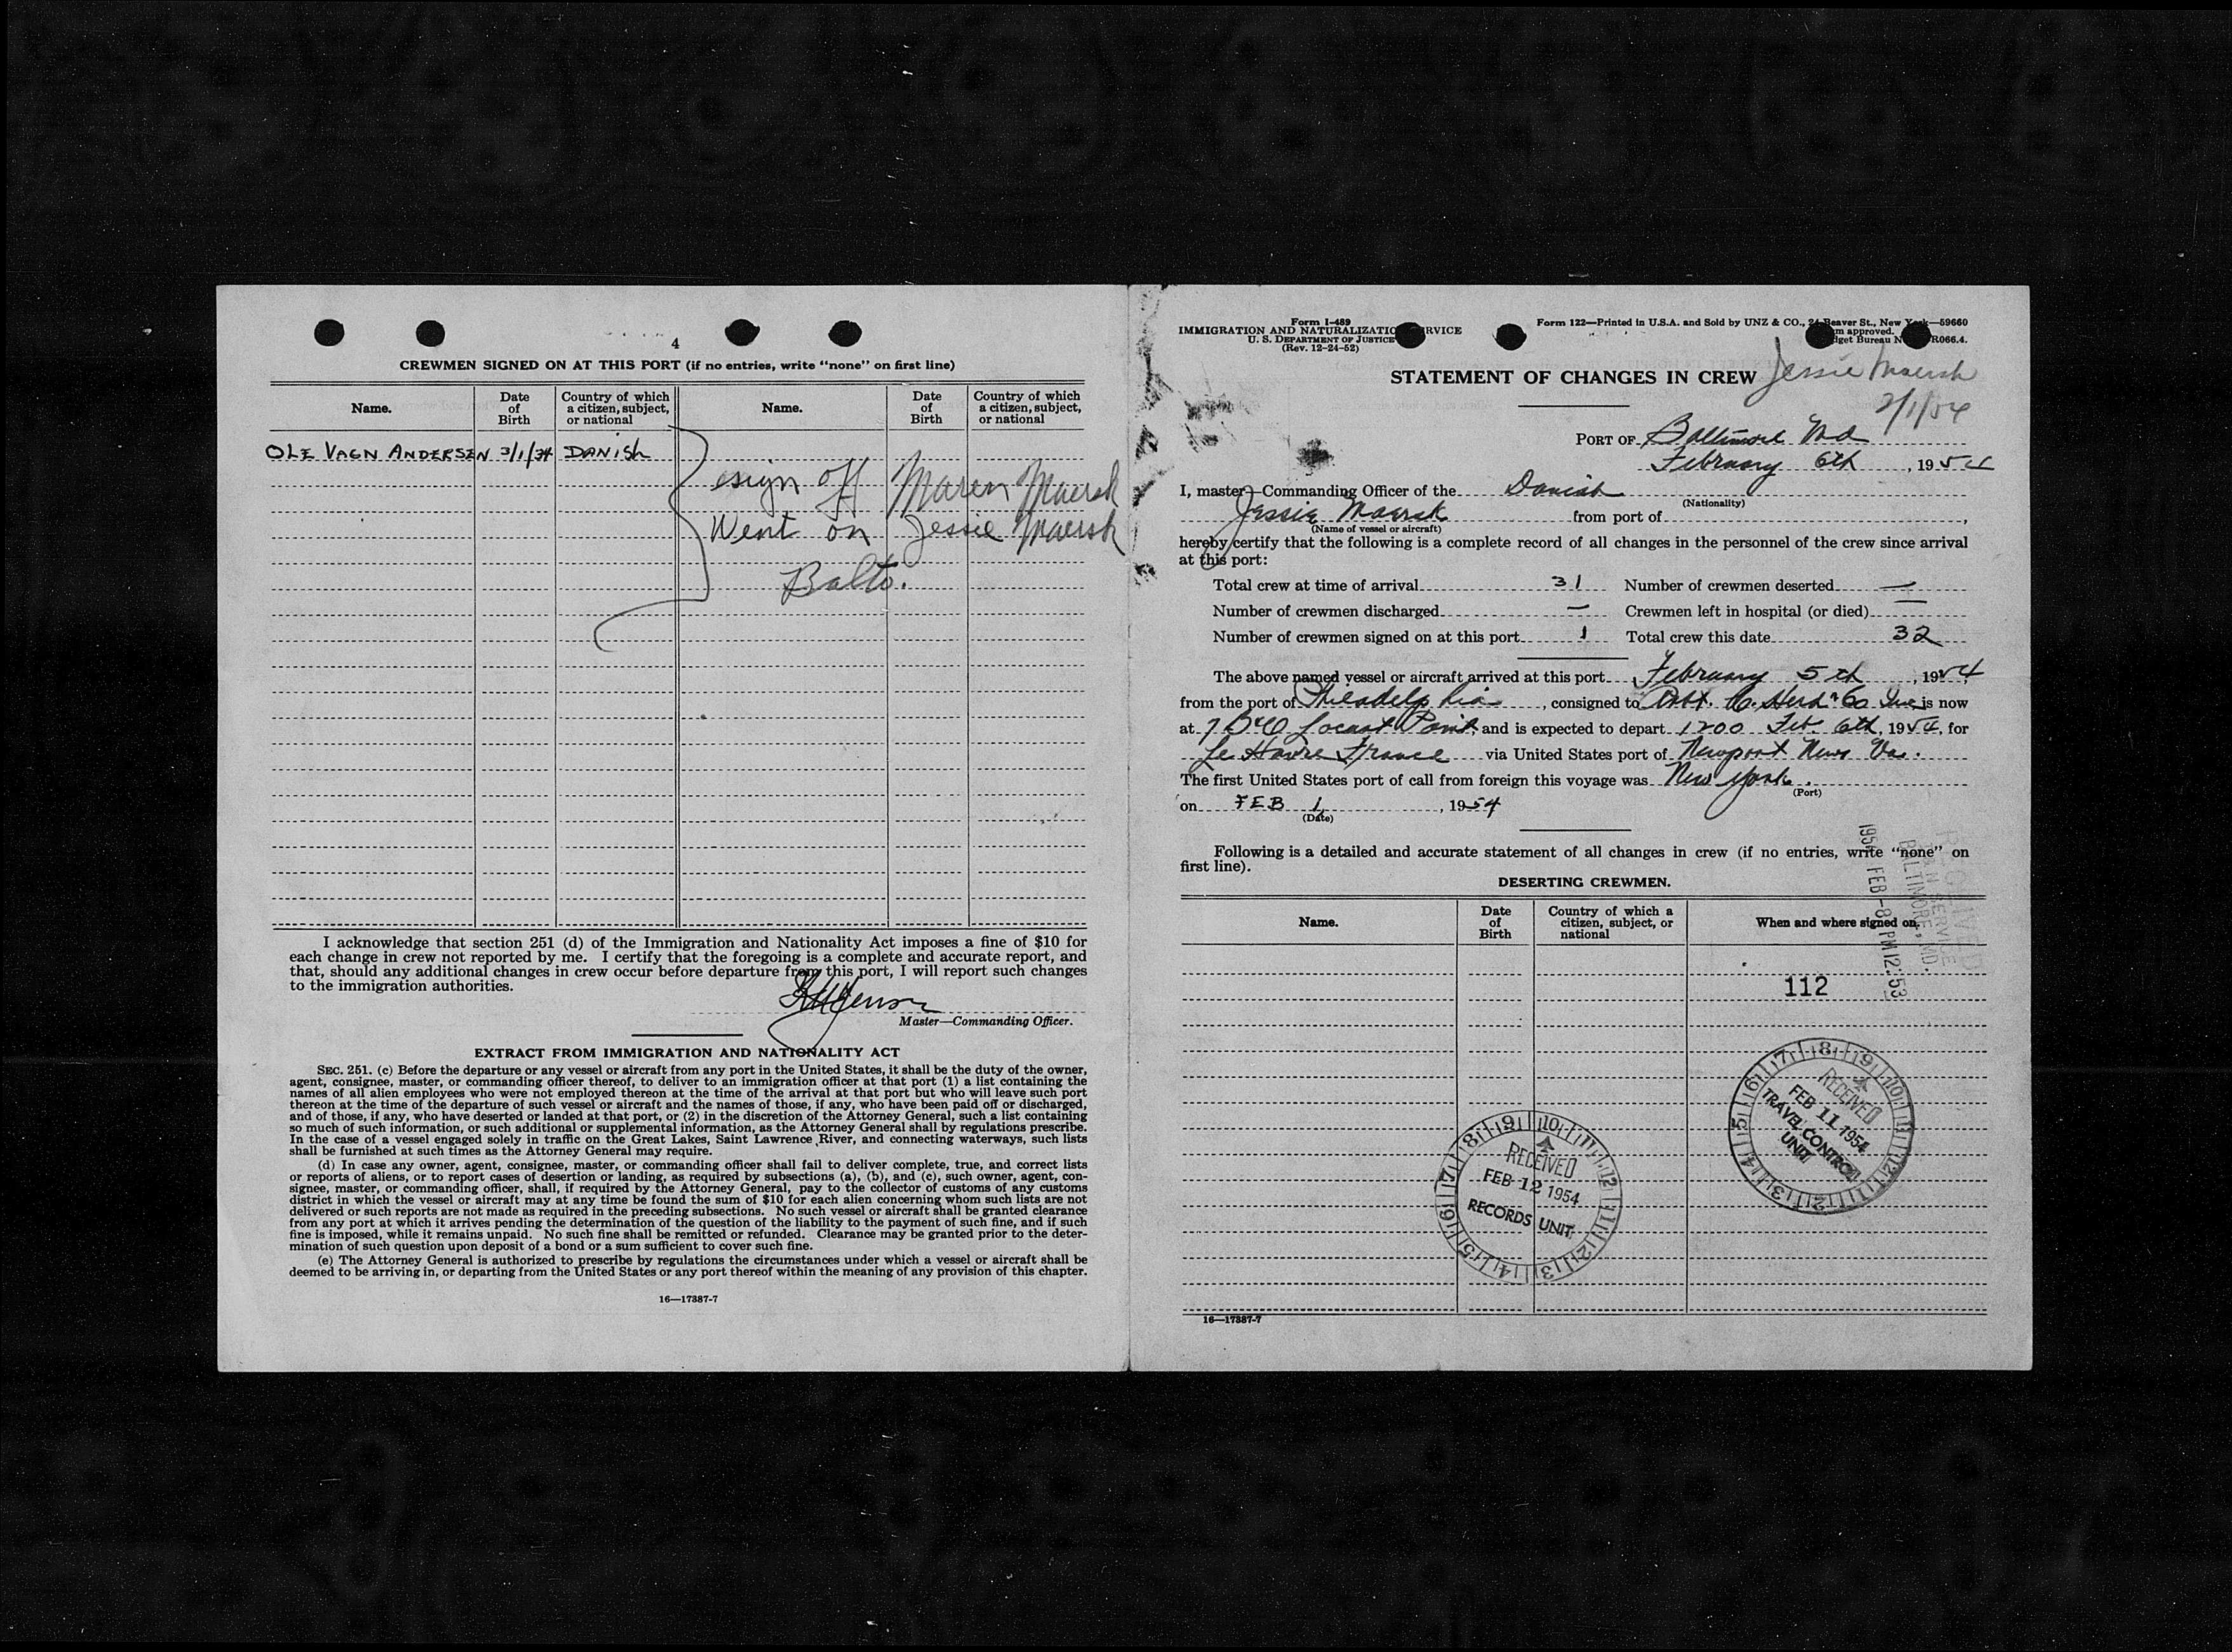 4
CREWMEN SIGNED ON AT THIS PORT (if no entries, write “none” on first line)
Name. Date of Birth Country of which a citizen, subject, or national Name. Date of Birth Country of which a citizen, subject, or national
OLE VAGN ANDERSEN 3/1/34 DANISH
sign off Maren Maersk
Went on Jessie Maersk
Balto.
I acknowledge that section 251 (d) of the Immigration and Nationality Act imposes a fine of $10 for
each change in crew not reported by me. I certify that the foregoing is a complete and accurate report, and
that, should any additional changes in crew occur before departure from this port, I will report such changes
to the immigration authorities.
Master—Commanding Officer.
EXTRACT FROM IMMIGRATION AND NATIONALITY ACT
SEC. 251. (c) Before the departure or any vessel or aircraft from any port in the United States, it shall be the duty of the owner,
agent, consignee, master, or commanding officer thereof, to deliver to an immigration officer at that port (1) a list containing the
names of all alien employees who were not employed thereon at the time of the arrival at that port but who will leave such port
thereon at the time of the departure of such vessel or aircraft and the names of those, if any, who have been paid off or discharged,
and of those, if any, who have deserted or landed at that port, or (2) in the discretion of the Attorney General, such a list containing
so much of such information, or such additional or supplemental information, as the Attorney General shall by regulations prescribe.
In the case of a vessel engaged solely in traffic on the Great Lakes, Saint Lawrence River, and connecting waterways, such lists
shall be furnished at such times as the Attorney General may require.
(d) In case any owner, agent, consignee, master, or commanding officer shall fail to deliver complete, true, and correct lists
or reports of aliens, or to report cases of desertion or landing, as required by subsections (a), (b), and (c), such owner, agent, con-
signee, master, or commanding officer, shall, if required by the Attorney General, pay to the collector of customs of any customs
district in which the vessel or aircraft may at any time be found the sum of $10 for each alien concerning whom such lists are not
delivered or such reports are not made as required in the preceding subsections. No such vessel or aircraft shall be granted clearance
from any port at which it arrives pending the determination of the question of the liability to the payment of such fine, and if such
fine is imposed, while it remains unpaid. No such fine shall be remitted or refunded. Clearance may be granted prior to the deter-
mination of such question upon deposit of a bond or a sum sufficient to cover such fine.
(e) The Attorney General is authorized to prescribe by regulations the circumstances under which a vessel or aircraft shall be
deemed to be arriving in, or departing from the United States or any port thereof within the meaning of any provision of this chapter.
16—17387-7
Form I-489
IMMIGRATION AND NATURALIZATIO RVICE
U. S. DEPARTMENT OF JUSTICE
(Rev. 12-24-52)
Form 122—Printed in U.S.A. and Sold by UNZ & CO., 24 Beaver St., New York—59660
m approved.
dget Bureau N R066.4.
STATEMENT OF CHANGES IN CREW Jessie Maersk
2/1/54
PORT OF Baltimore Md
February 6th, 1954
I, master—Commanding Officer of the Danish
(Nationality)
Jessie Maersk from port of ,
(Name of vessel or aircraft)
hereby certify that the following is a complete record of all changes in the personnel of the crew since arrival
at this port:
Total crew at time of arrival 31 Number of crewmen deserted —
Number of crewmen discharged — Crewmen left in hospital (or died) —
Number of crewmen signed on at this port 1 Total crew this date 32
The above named vessel or aircraft arrived at this port February 5th, 1954
from the port of Philadelphia, consigned to C. Herd & Co Inc is now
at 7 B&O Locust Point, and is expected to depart 1200 Feb. 6th, 1954, for
Le Havre France via United States port of Newport News Va.
The first United States port of call from foreign this voyage was New York.
(Port)
on FEB 1, 1954
(Date)
Following is a detailed and accurate statement of all changes in crew (if no entries, write “none” on
first line).
DESERTING CREWMEN.
Name. Date of Birth Country of which a citizen, subject, or national When and where signed on
RECEIVED
BALTIMORE, MD.
1954 FEB-8 PM 12:53
112
RECEIVED
FEB 11 1954
TRAVEL CONTROL
UNIT
RECEIVED
FEB 12 1954
RECORDS UNIT
16—17387-7